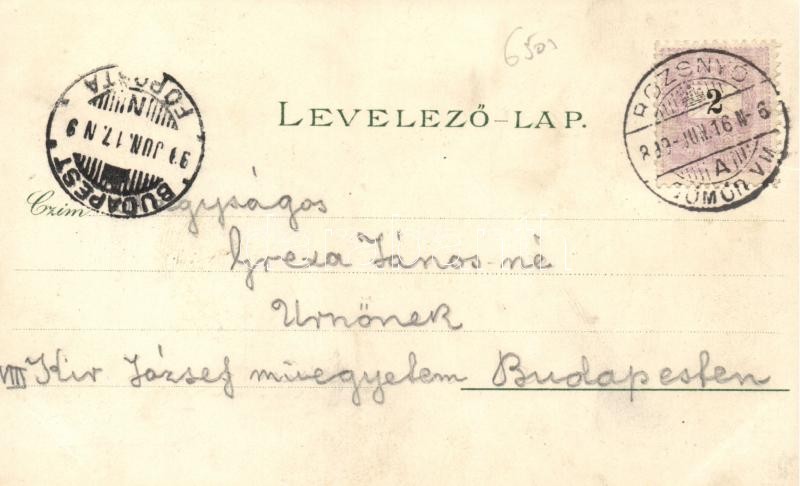 6501
LEVELEZŐ-LAP.
ROZSNYÓ
899-JUN.16 N-6
A
GÖMÖR VM
2
BUDAPEST
99 JUN.17. N 9
N
FŐPOSTA
Czim
Nagyságos
Greza János né
Urnőnek
VIII Kir József müegyetem Budapesten